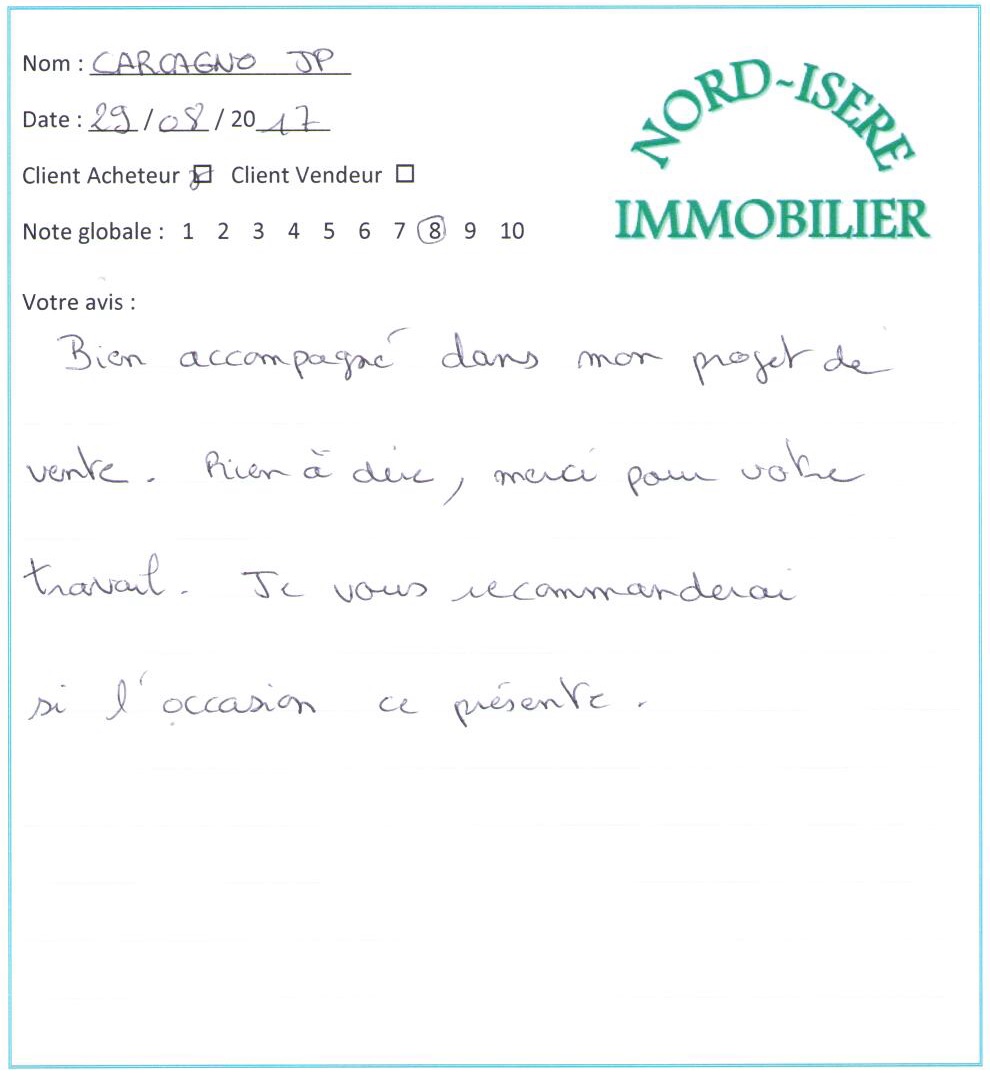 Nom : CARCAGNO JP
Date : 29/08/2017
NORD-ISERE
IMMOBILIER
Client Acheteur ☑ Client Vendeur ☐
Note globale : 1 2 3 4 5 6 7 8 9 10
Votre avis :
Bien accompagné dans mon projet de
vente. Rien à dire, merci pour votre
travail. Je vous recommanderai
si l'occasion ce présente.